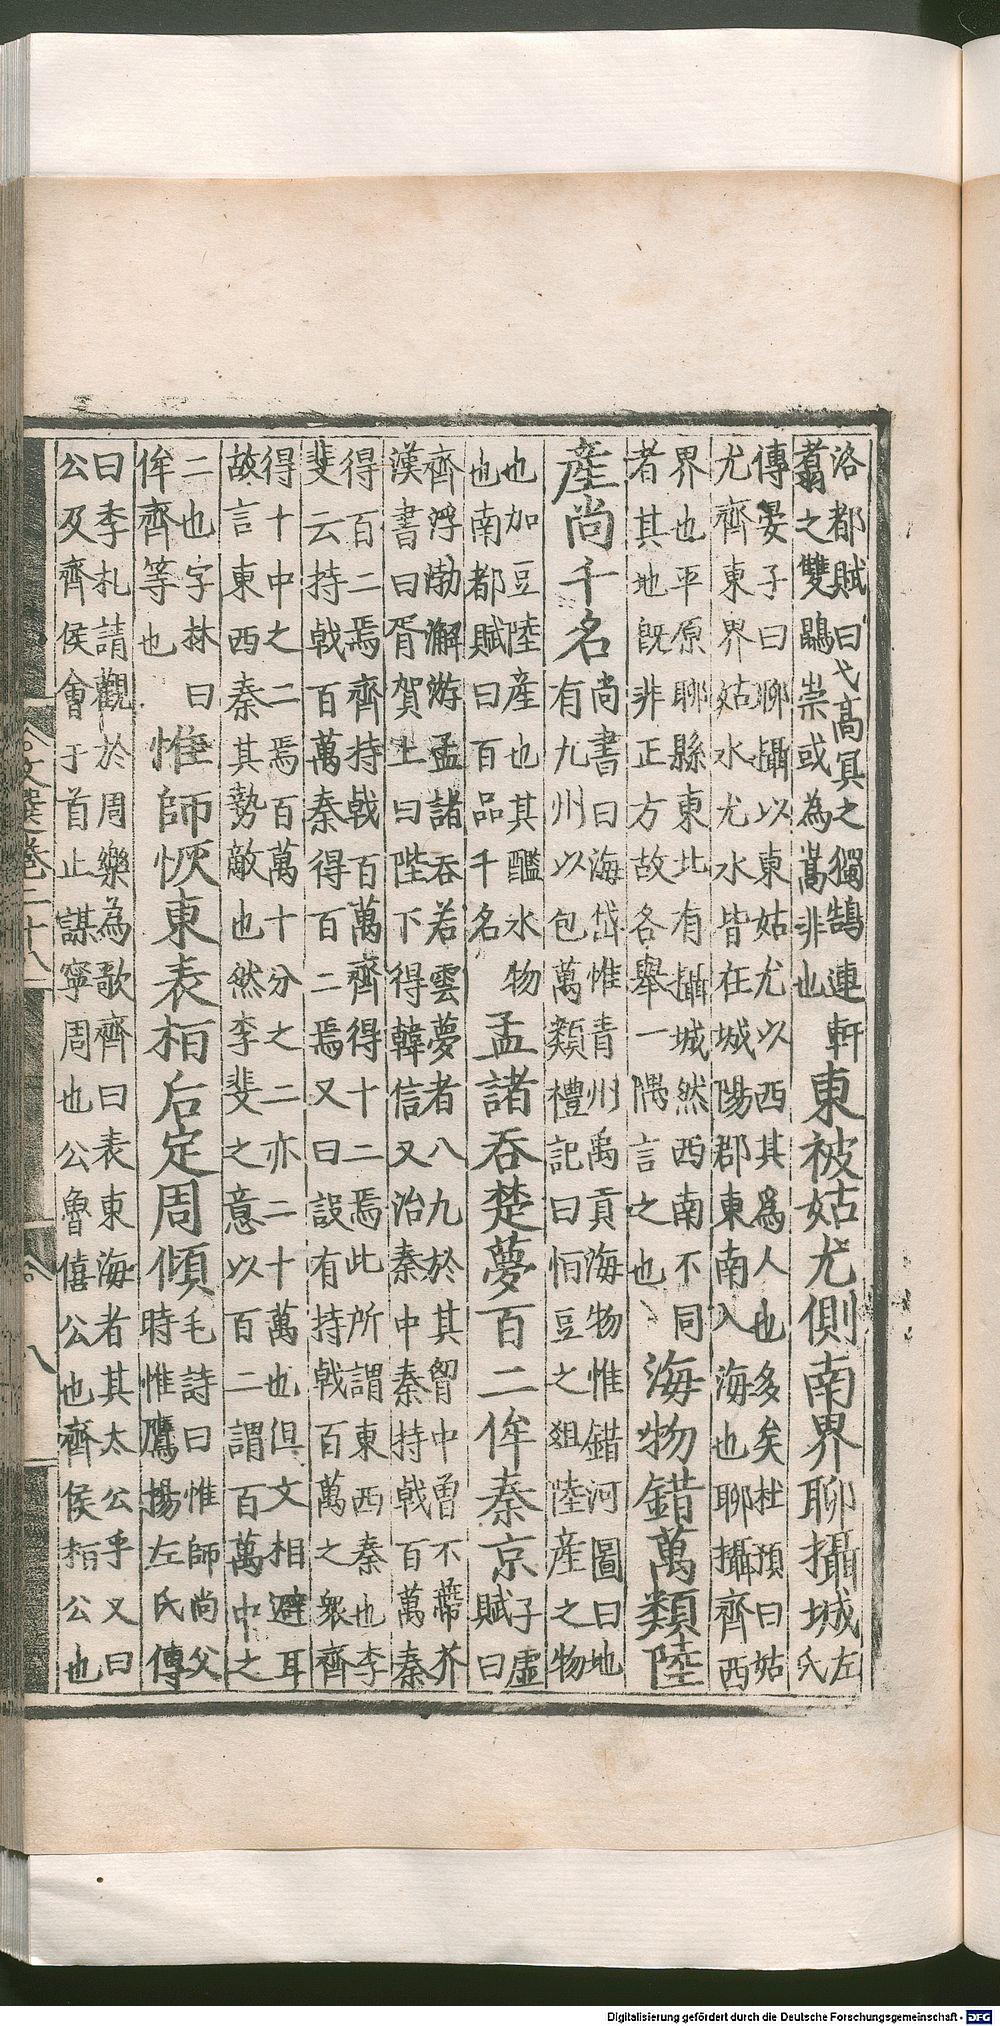 洛都賦曰弋高冥之獨鵠連軒
翥之雙鶤崇或為嵩非也
東被姑尤側南界聊攝城
左
氏
傳晏子曰聊攝以東姑尤以西其爲人也多矣杜預曰姑
尤齊東界姑水尤水皆在城陽郡東南入海也聊攝齊西
界也平原聊縣東北有攝城然西南不同
者其地旣非正方故各舉一隅言之也
海物錯萬類陸
產尚千名
尚書曰海岱惟青州禹貢海物惟錯河圖曰地
有九州以包萬類禮記曰恒豆之俎陸產之物
也加豆陸產也其醢水物
也南都賦曰百品千名
孟諸吞楚夢百二侔秦京
子虛
賦曰
齊浮渤澥游孟諸吞若雲夢者八九於其胷中曾不蔕芥
漢書曰胥賀上曰陛下得韓信又治秦中秦持戟百萬秦
得百二焉齊持戟百萬齊得十二焉此所謂東西秦也李
斐云持戟百萬秦得百二焉又曰設有持戟百萬之眾齊
得十中之二焉百萬十分之二亦二十萬也但文相避耳
故言東西秦其勢敵也然李斐之意以百二謂百萬中之
二也字林曰
侔齊等也
惟師恢東表桓后定周傾
毛詩曰惟師尚父
時惟鷹揚左氏傳
曰李札請觀於周樂為歌齊曰表東海者其太公乎又曰
公及齊侯會于首止謀寧周也公魯僖公也齊侯桓公也
文選卷二十八
八
Digitalisierung gefördert durch die Deutsche Forschungsgemeinschaft - DFG